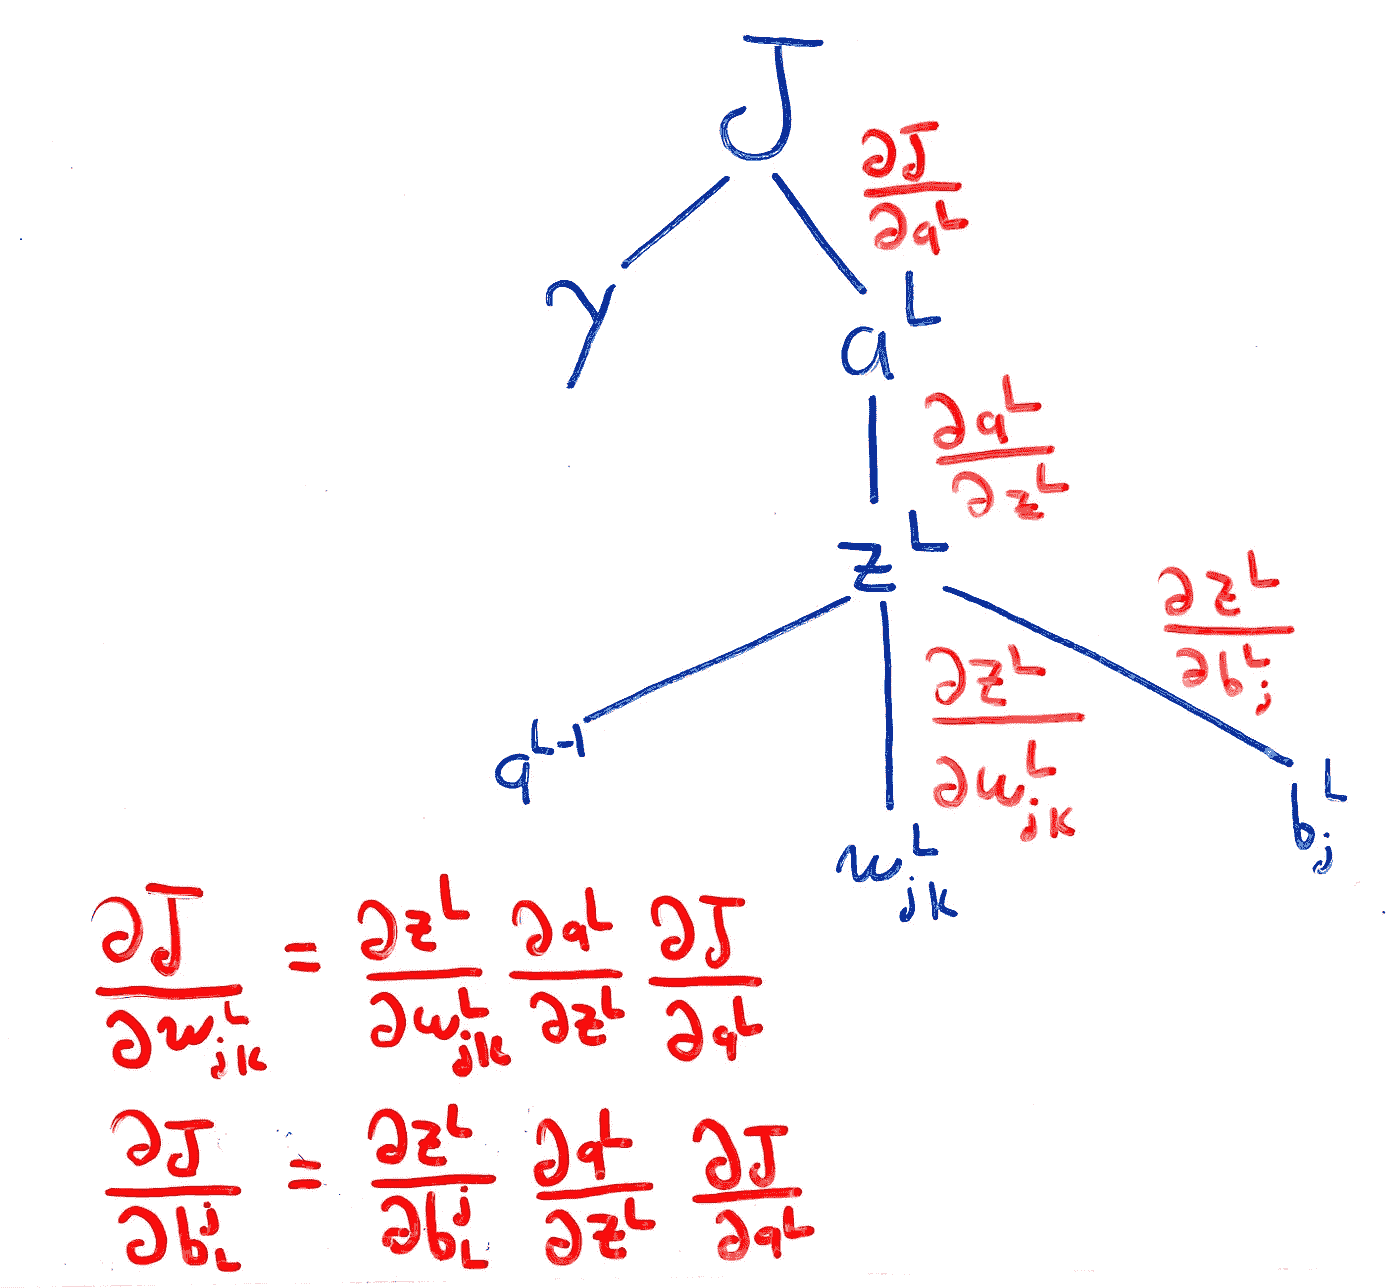 J
∂J/∂a^L
y
a^L
∂a^L/∂z^L
z^L
∂z^L/∂b_j^L
∂z^L/∂w_jk^L
a^(L-1)
w_jk^L
b_j^L
∂J/∂w_jk^L = ∂z^L/∂w_jk^L ∂a^L/∂z^L ∂J/∂a^L
∂J/∂b_L^j = ∂z^L/∂b_L^j ∂a^L/∂z^L ∂J/∂a^L